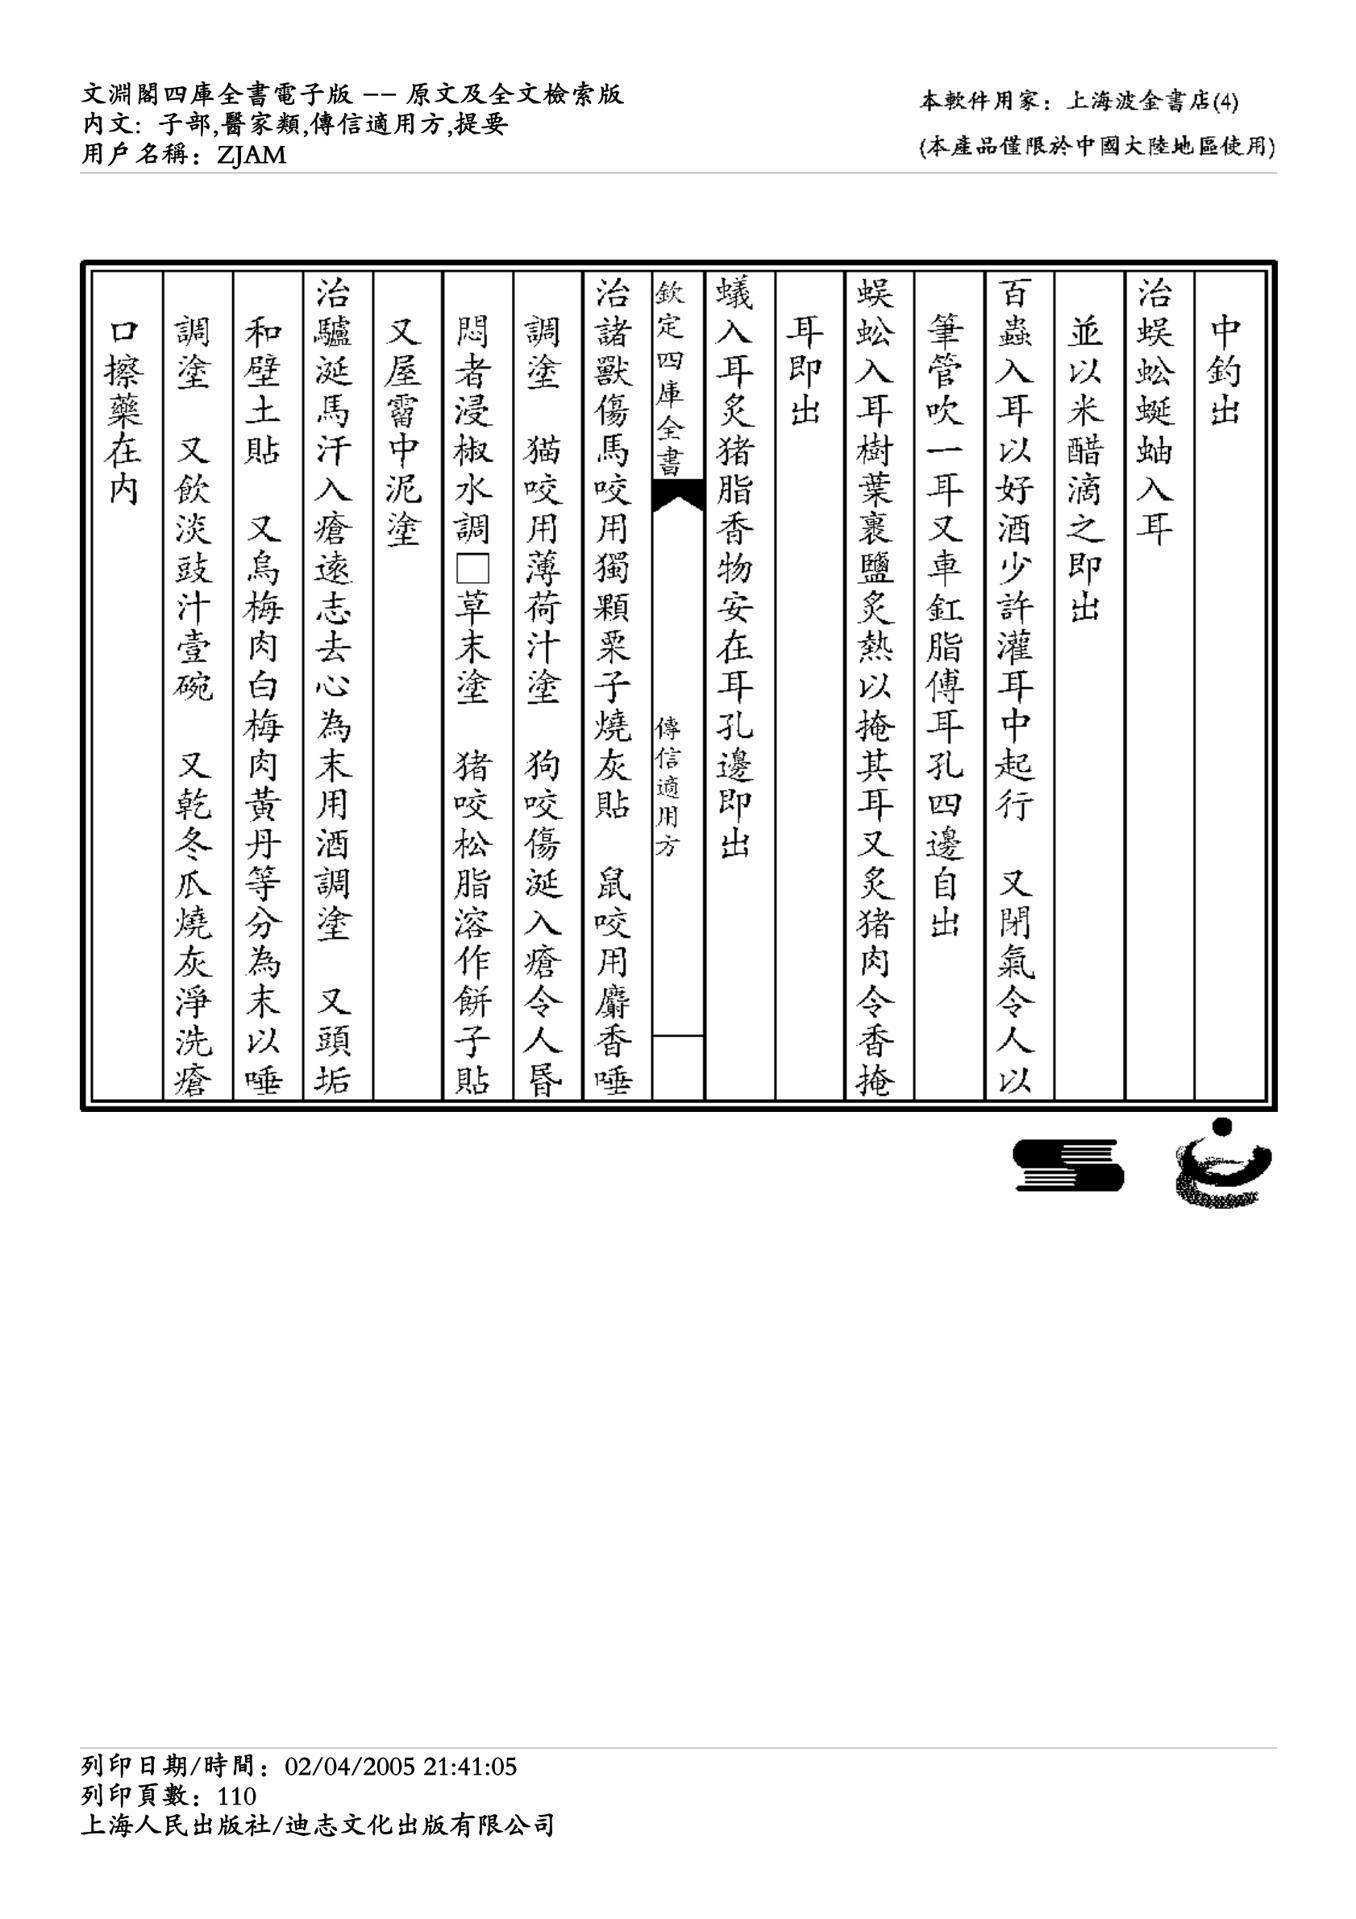 文淵閣四庫全書電子版 -- 原文及全文檢索版
內文: 子部,醫家類,傳信適用方,提要
用戶名稱: ZJAM
本軟件用家: 上海波金書店(4)
(本產品僅限於中國大陸地區使用)
中釣出
治蜈蚣蜒蚰入耳
並以米醋滴之即出
百蟲入耳以好酒少許灌耳中起行 又閉氣令人以
筆管吹一耳又車釭脂傅耳孔四邊自出
蜈蚣入耳樹葉裹鹽炙熱以掩其耳又炙猪肉令香掩
耳即出
蟻入耳炙猪脂香物安在耳孔邊即出
欽定四庫全書 傳信適用方
治諸獸傷馬咬用獨顆栗子燒灰貼 鼠咬用麝香唾
調塗 猫咬用薄荷汁塗 狗咬傷涎入瘡令人昬
悶者浸椒水調□草末塗 猪咬松脂溶作餅子貼
又屋霤中泥塗
治驢涎馬汗入瘡遠志去心為末用酒調塗 又頭垢
和壁土貼 又烏梅肉白梅肉黃丹等分為末以唾
調塗 又飲淡豉汁壹碗 又乾冬瓜燒灰淨洗瘡
口擦藥在内
列印日期/時間: 02/04/2005 21:41:05
列印頁數: 110
上海人民出版社/迪志文化出版有限公司